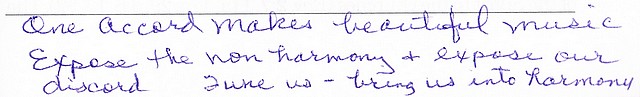 One accord makes beautiful music
Expose the non harmony & expose our
discord Tune us - bring us into harmony